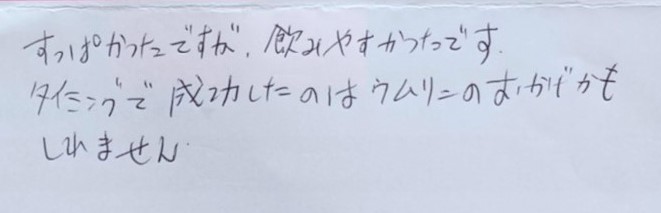 すっぱかったですが、飲みやすかったです.
タイミングで成功したのはウムリンのおかげかも
しれません.